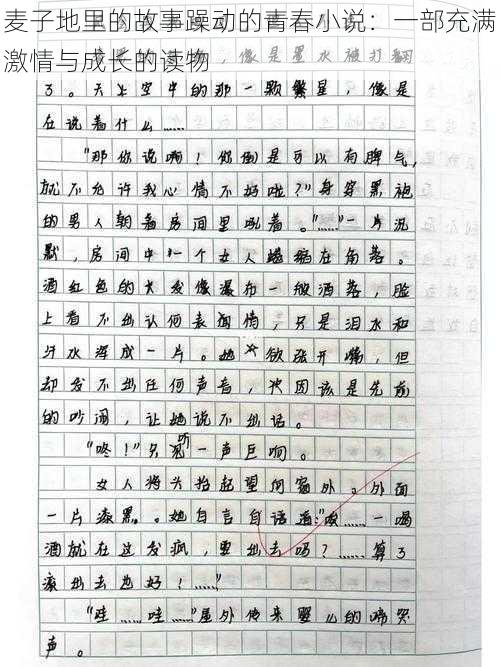 麦子地里的故事躁动的青春小说：一部充满
激情与成长的读物
像是墨水被打翻
了。天上空中的那一颗繁星，像是
在说着什么……
"那你说啊！你倒是可以有脾气，
就不允许我心情不好啦？"身穿黑袍
的男人朝着房间里吼着。"……"一片沉
默，房间中一个女人蜷缩在角落。
酒红色的大发像瀑布一般洒落，脸
上看不出认何表情，只是泪水和
汗水浑成一片。她欲张开嘴，但
却发不出任何声音，决因该是先前
的吵闹，让她说不出话。
"咚！"只听一声巨响。
女人将头抬起望向窗外。外面
一片漆黑。她自言自语道："故……一喝
酒就在这发疯，要出去吗？……算了
滚出去也好！……"
"哇……哇……"屋外传来婴儿的啼哭
声。